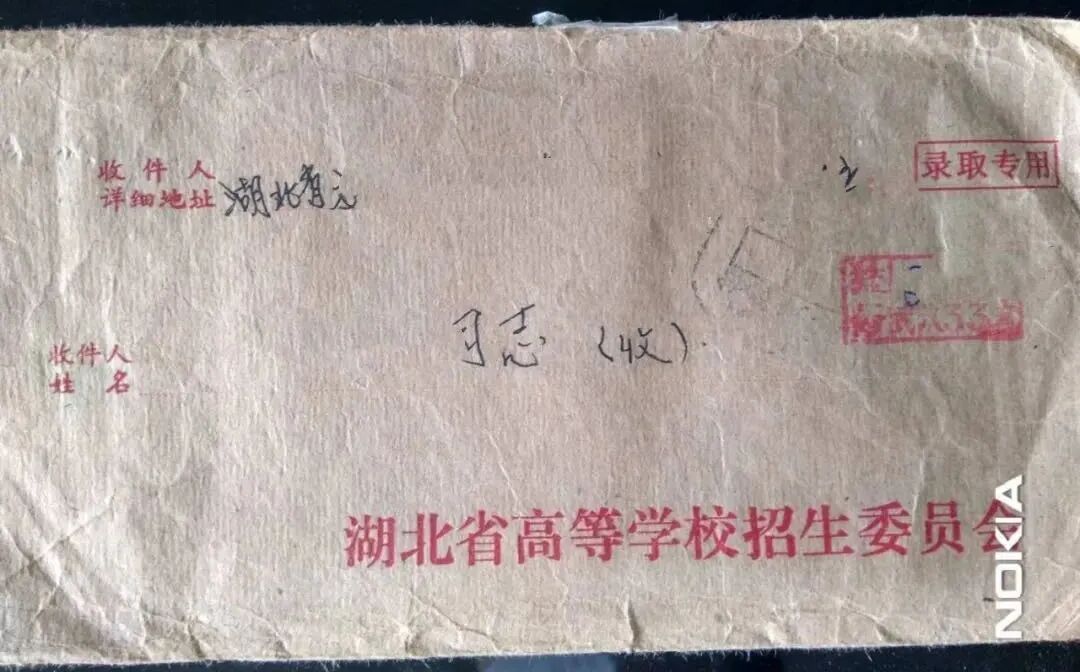 录取专用
收件人
详细地址 湖北省
收件人
姓名
志 (收)
湖北省高等学校招生委员会
NOKIA